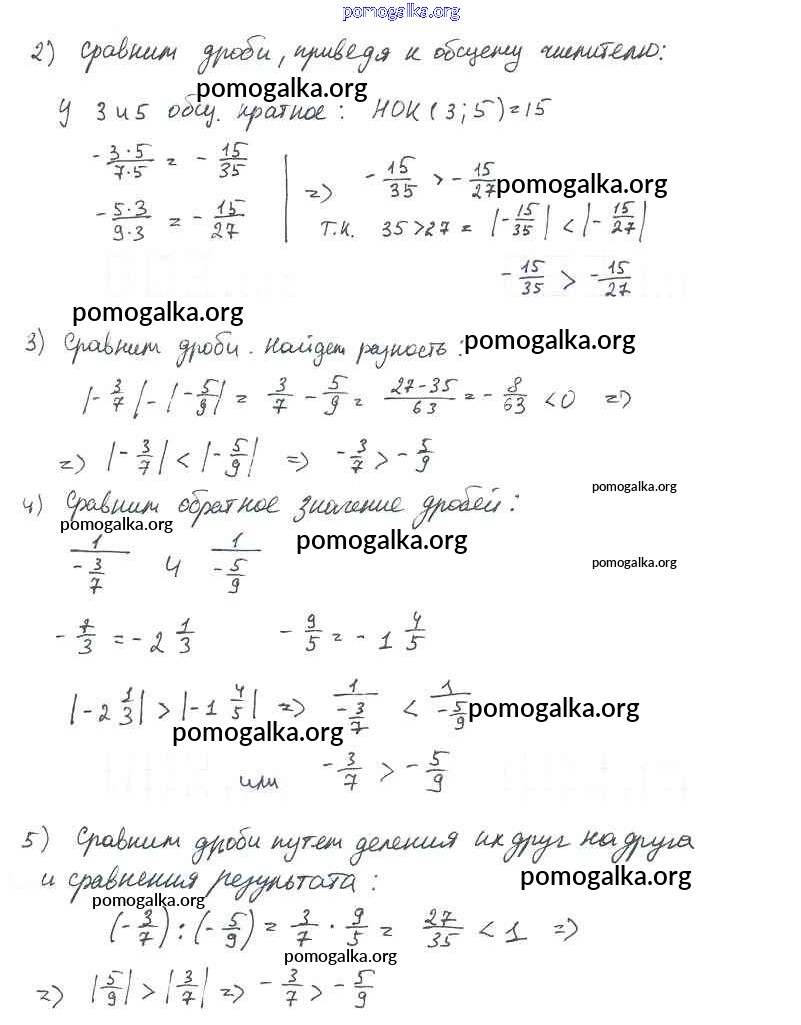 pomogalka.org
2) Сравним дроби, приведя к общему числителю:
pomogalka.org
У 3 и 5 общ. кратное: НОК(3;5)=15
-3·5/7·5 = -15/35 | => -15/35 > -15/27 pomogalka.org
-5·3/9·3 = -15/27 | т.к. 35>27 = |-15/35| < |-15/27|
-15/35 > -15/27
pomogalka.org
3) Сравним дроби. Найдем разность: pomogalka.org
|-3/7| - |-5/9| = 3/7 - 5/9 = 27-35/63 = -8/63 <0 =>
=> |-3/7| < |-5/9| => -3/7 > -5/9
pomogalka.org
4) Сравним обратное значение дробей:
pomogalka.org
pomogalka.org
1/-3/7 и 1/-5/9
pomogalka.org
-7/3 = -2 1/3 -9/5 = -1 4/5
|-2 1/3| > |-1 4/5| => 1/-3/7 < 1/-5/9 pomogalka.org
pomogalka.org
или -3/7 > -5/9
5) Сравним дроби путем деления их друг на друга
и сравнения результата: pomogalka.org
pomogalka.org
(-3/7):(-5/9) = 3/7 · 9/5 = 27/35 < 1 =>
pomogalka.org
=> |5/9| > |3/7| => -3/7 > -5/9